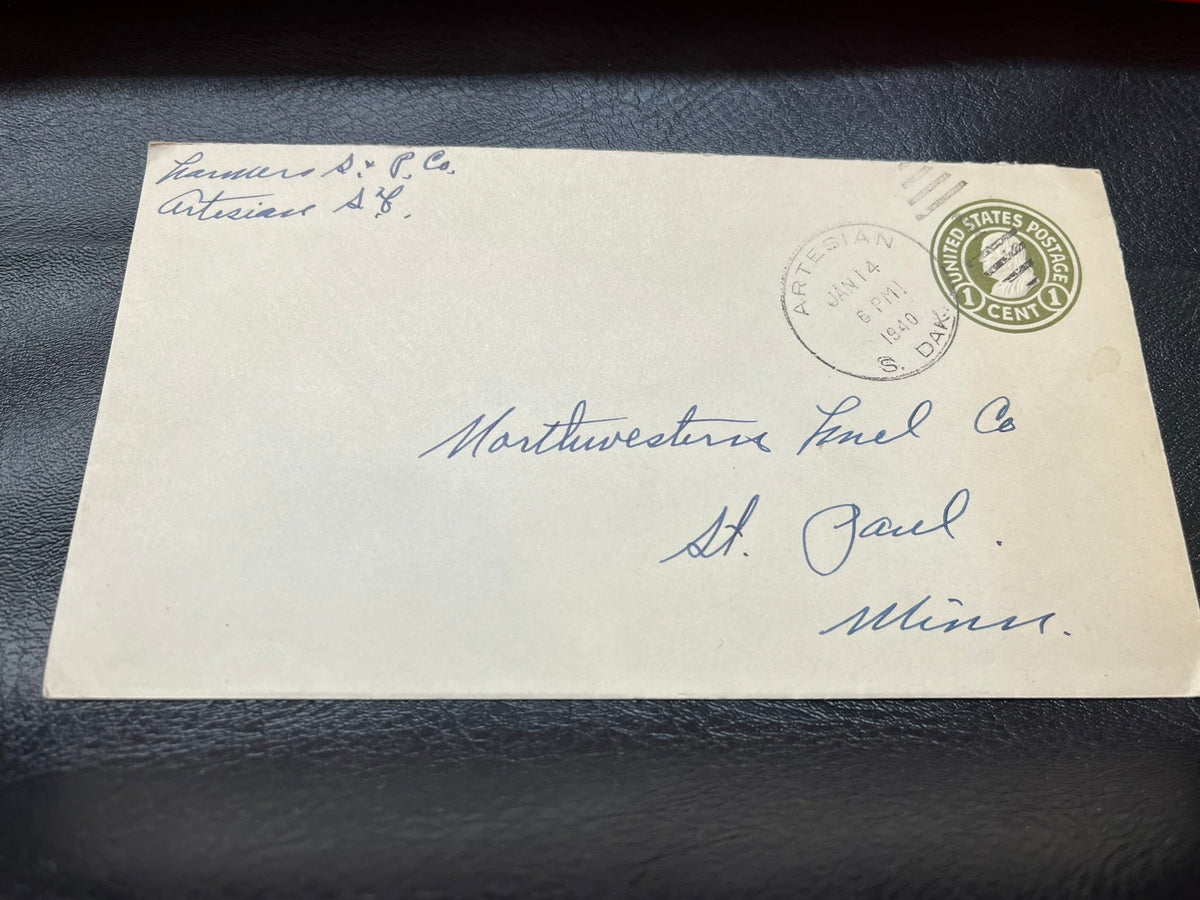 Farmers S. & P. Co.
Artesian S.D.
ARTESIAN
JAN 14
6 PM
1940
S. DAK.
UNITED STATES POSTAGE
1 CENT 1
Northwestern Fuel Co
St. Paul.
Minn.